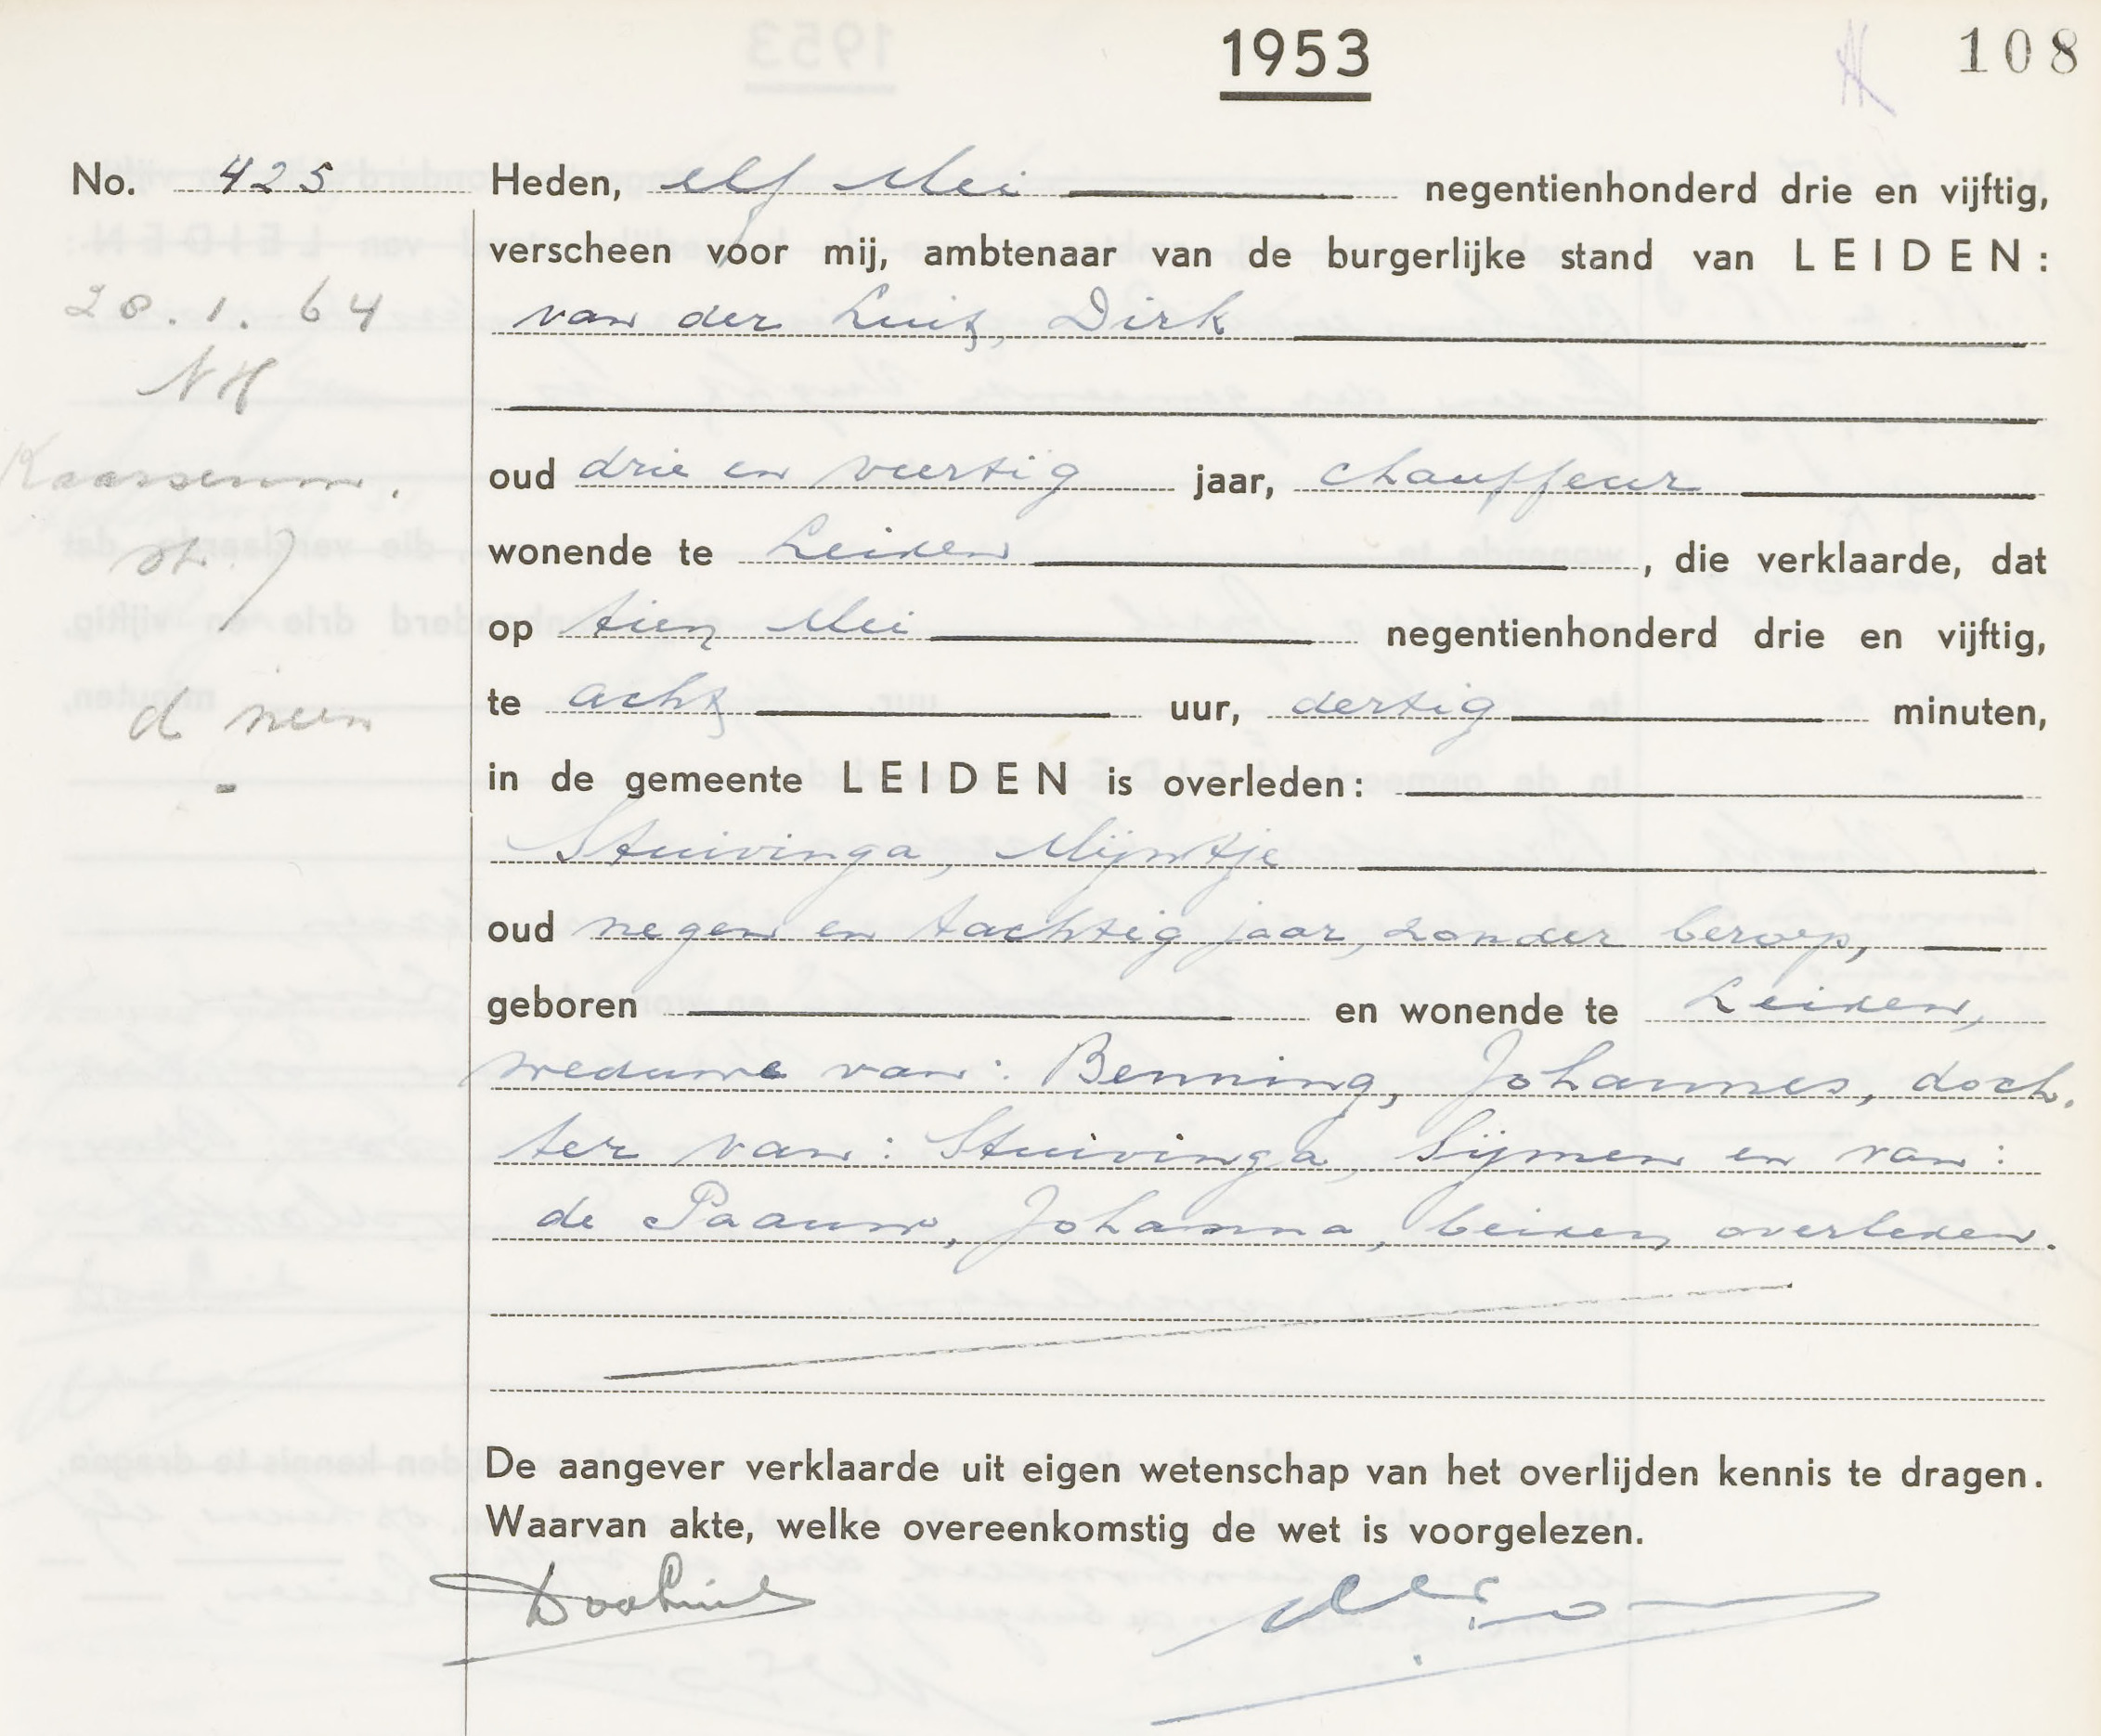 1953
108
No. 425
Heden, elf Mei negentienhonderd drie en vijftig,
verscheen voor mij, ambtenaar van de burgerlijke stand van LEIDEN:
van der Luit, Dirk
oud drie en veertig jaar, chauffeur
wonende te Leiden, die verklaarde, dat
op tien Mei negentienhonderd drie en vijftig,
te acht uur, dertig minuten,
in de gemeente LEIDEN is overleden:
Stuivinga, Mijntje
oud negen en tachtig jaar, zonder beroep,
geboren en wonende te Leiden,
weduwe van: Benning, Johannes, doch-
ter van: Stuivinga, Sijmen en van:
de Paauw, Johanna, beiden overleden.
De aangever verklaarde uit eigen wetenschap van het overlijden kennis te dragen.
Waarvan akte, welke overeenkomstig de wet is voorgelezen.
20.1.64
NH
d neen
-